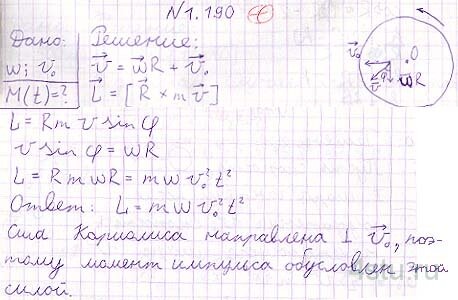 N1.190 +
Дано: Решение:
w; v₀ v⃗ = w⃗R + v⃗₀
M(t)=? L⃗ = [R⃗ × m v⃗]
v⃗₀ O
v⃗ φ wR
L = R m v sin φ
v sin φ = wR
L = R m wR = m w v₀² t²
Ответ: L = m w v₀² t²
Сила Кориолиса направлена ⊥ v⃗₀, поэ-
тому момент импульса обусловлен этой
силой.